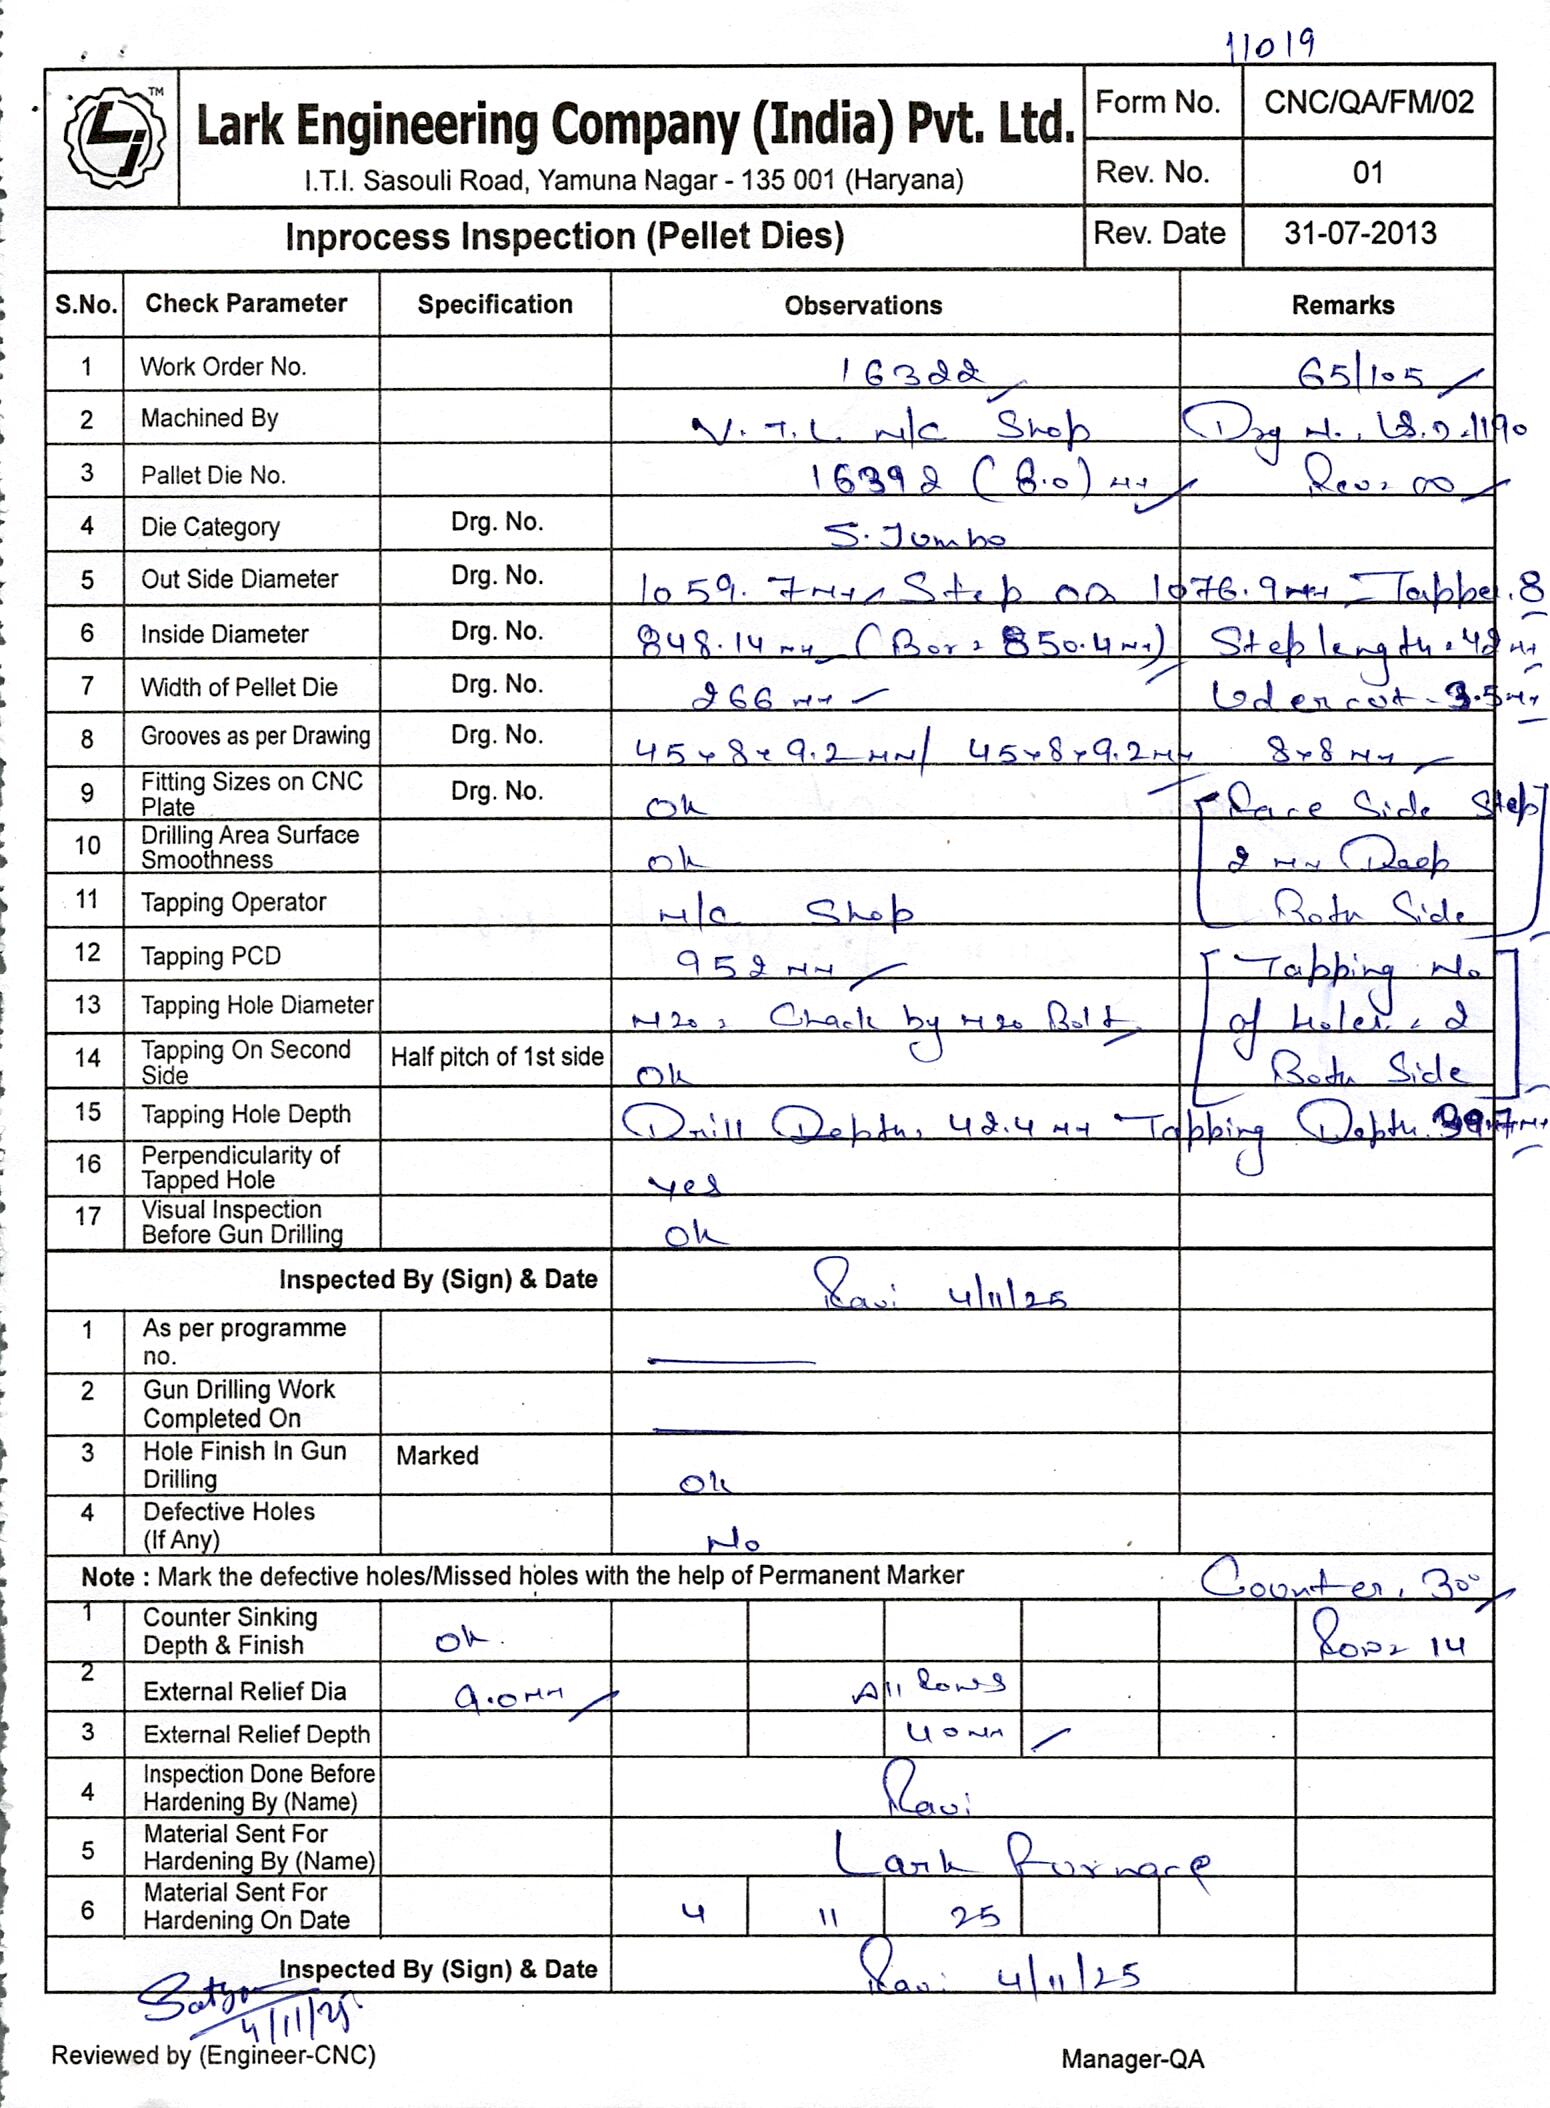 11019
TM
Lark Engineering Company (India) Pvt. Ltd.
I.T.I. Sasouli Road, Yamuna Nagar - 135 001 (Haryana)
Form No. CNC/QA/FM/02
Rev. No. 01
Inprocess Inspection (Pellet Dies) Rev. Date 31-07-2013
S.No. Check Parameter Specification Observations Remarks
1 Work Order No. 16322 65/105
2 Machined By V.T.L. M/C Shop Drg N.
3 Pallet Die No. 16392 (8.0) MM Rev. 00
4 Die Category Drg. No. S. Jumbo
5 Out Side Diameter Drg. No. 1059.7MM Step OD 1076.9MM = Tapper. 8
6 Inside Diameter Drg. No. 848.14 MM (Bor = 850.4MM) Step length. 42 MM
7 Width of Pellet Die Drg. No. 266 MM Udercut - 3.5MM
8 Grooves as per Drawing Drg. No. 45x8x9.2 MM/ 45x8x9.2MM 8x8 MM
9 Fitting Sizes on CNC
Plate Drg. No. Ok Face Side Step
10 Drilling Area Surface
Smoothness Ok 2 MM Deep
11 Tapping Operator M/C Shop Both Side
12 Tapping PCD 952 MM Tapping No
13 Tapping Hole Diameter M20 = Chack by M20 Bolt of Holes = 2
14 Tapping On Second
Side Half pitch of 1st side Ok Both Side
15 Tapping Hole Depth Drill Depth. 42.4 MM Tapping Depth. 39.7MM
16 Perpendicularity of
Tapped Hole yes
17 Visual Inspection
Before Gun Drilling Ok
Inspected By (Sign) & Date Ravi 4/11/25
1 As per programme
no.
2 Gun Drilling Work
Completed On
3 Hole Finish In Gun
Drilling Marked Ok
4 Defective Holes
(If Any) No
Note : Mark the defective holes/Missed holes with the help of Permanent Marker Counter. 30°
1 Counter Sinking
Depth & Finish Ok. Row = 14
2 External Relief Dia 9.0MM All Rows
3 External Relief Depth 40MM
4 Inspection Done Before
Hardening By (Name) Ravi
5 Material Sent For
Hardening By (Name) Lark Furnace
6 Material Sent For
Hardening On Date 4 11 25
Inspected By (Sign) & Date Ravi 4/11/25
4/11/25
Reviewed by (Engineer-CNC) Manager-QA